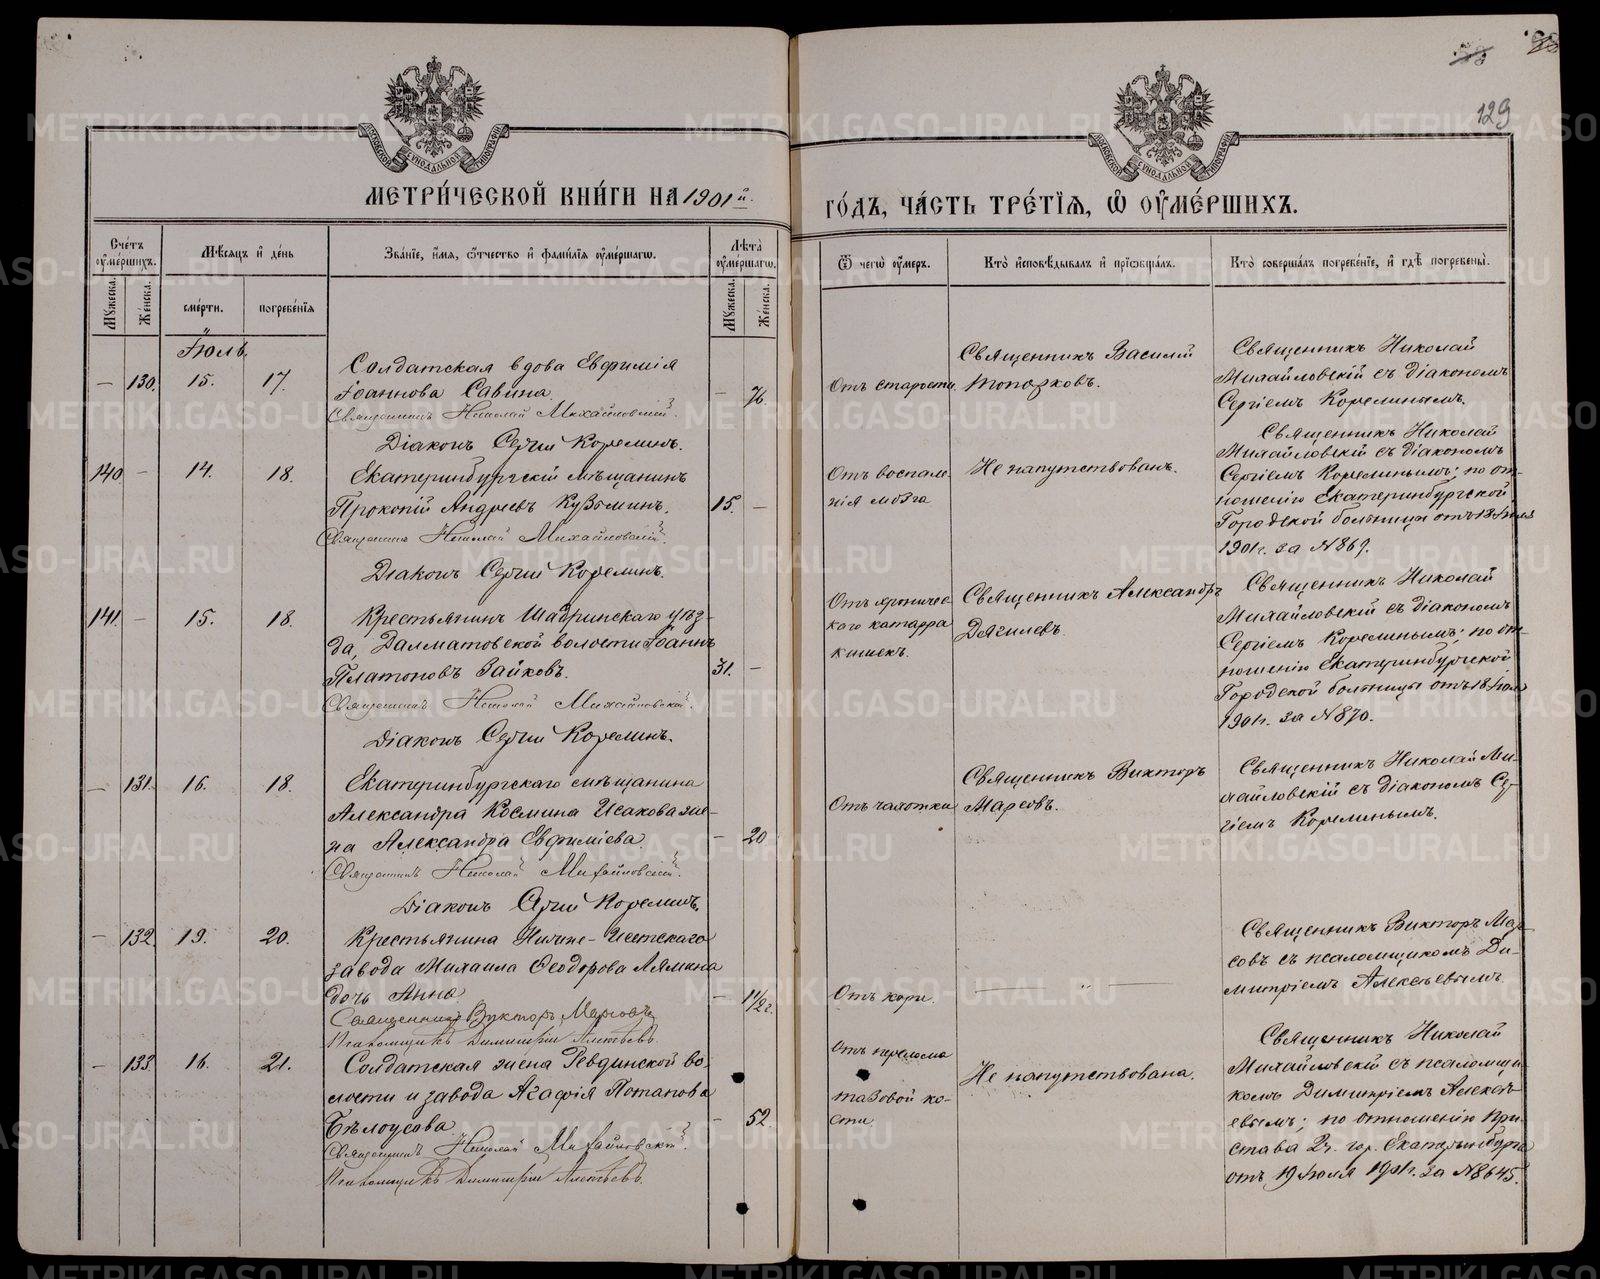 129
МЕТРИ́ЧЕСКОЙ КНИ́ГИ НА 1901й
ГО́ДЪ, ЧА́СТЬ ТРЕ́ТЇѦ, Ѽ ОУМЕ́РШИХЪ.
МОСКОВСКОЙ СѴНОДАЛЬНОЙ ТИПОГРАФІИ
МОСКОВСКОЙ СѴНОДАЛЬНОЙ ТИПОГРАФІИ
Сче́тъ оуме́ршихъ.
Мꙋжеска.
Же́нска.
Мѣ́сяцъ и҆ де́нь
сме́рти.
погребе́нїѧ
Зва́нїе, и҆́мѧ, ѻ҆́тчество и҆ фами́лїѧ оуме́ршагѡ.
Лѣта̀ оуме́ршагѡ.
Мꙋжеска.
Же́нска.
Ѿ чегѡ̀ оу҆́меръ.
Кто̀ и҆сповѣ́дывалъ и҆ прїѡбща́лъ.
Кто̀ соверша́лъ погребе́нїе, и҆ гдѣ̀ погребены̀.
Іюль.
— 130. 15. 17.
Солдатская вдова Евфимія
Іоаннова Савина.
Священникъ Николай Михайловскій.
Діаконъ Сергій Корелинъ.
— 76.
Отъ старости.
Священникъ Василій
Топорковъ.
Священникъ Николай
Михайловскій съ діакономъ
Сергіемъ Корелинымъ.
140 — 14. 18.
Екатеринбургскій мѣщанинъ
Прокопій Андреевъ Кузьминъ.
Священникъ Николай Михайловскій.
Діаконъ Сергій Корелинъ.
15. —
Отъ воспале-
нія мозга
Не напутствованъ.
Священникъ Николай
Михайловскій съ діакономъ
Сергіемъ Корелинымъ; по от-
ношенію Екатеринбургской
Городской больницы отъ 18 Іюля
1901 г. за № 869.
141. — 15. 18.
Крестьянинъ Шадринскаго уѣз-
да, Далматовской волости Іоаннъ
Платоновъ Зайковъ.
Священникъ Николай Михайловскій.
Діаконъ Сергій Корелинъ.
31. —
Отъ хроничес-
каго катарра
кишекъ.
Священникъ Александръ
Дягилевъ.
Священникъ Николай
Михайловскій съ діакономъ
Сергіемъ Корелинымъ; по от-
ношенію Екатеринбургской
Городской больницы отъ 18 Іюля
1901 г. за № 870.
— 131. 16. 18.
Екатеринбургскаго мѣщанина
Александра Космина Исакова же-
на Александра Евфиміева.
Священникъ Николай Михайловскій.
Діаконъ Сергій Корелинъ.
— 20
Отъ чахотки
Священникъ Викторъ
Марсовъ.
Священникъ Николай Ми-
хайловскій съ діакономъ Сер-
гіемъ Корелинымъ.
— 132. 19. 20.
Крестьянина Нижне-Исетскаго
завода Михаила Ѳеодорова Лямина
дочь Анна.
Священникъ Викторъ Марсовъ
Псаломщикъ Димитрій Алексѣевъ.
— 1 1/2 г.
Отъ кори.
— " —
Священникъ Викторъ Мар-
совъ съ псаломщикомъ Ди-
митріемъ Алексѣевымъ.
— 133. 16. 21.
Солдатская жена Ревдинской во-
лости и завода Агафія Потапова
Бѣлоусова
Священникъ Николай Михайловскій.
Псаломщикъ Димитрій Алексѣевъ.
— 52.
Отъ перелома
тазовой ко-
сти.
Не напутствована.
Священникъ Николай
Михайловскій съ псаломщи-
комъ Димитріемъ Алексѣ-
евымъ; по отношенію При-
става 2 ч. гор. Екатеринбурга
отъ 19 Іюля 1901 г. за № 8645.
METRIKI.GASO-URAL.RU